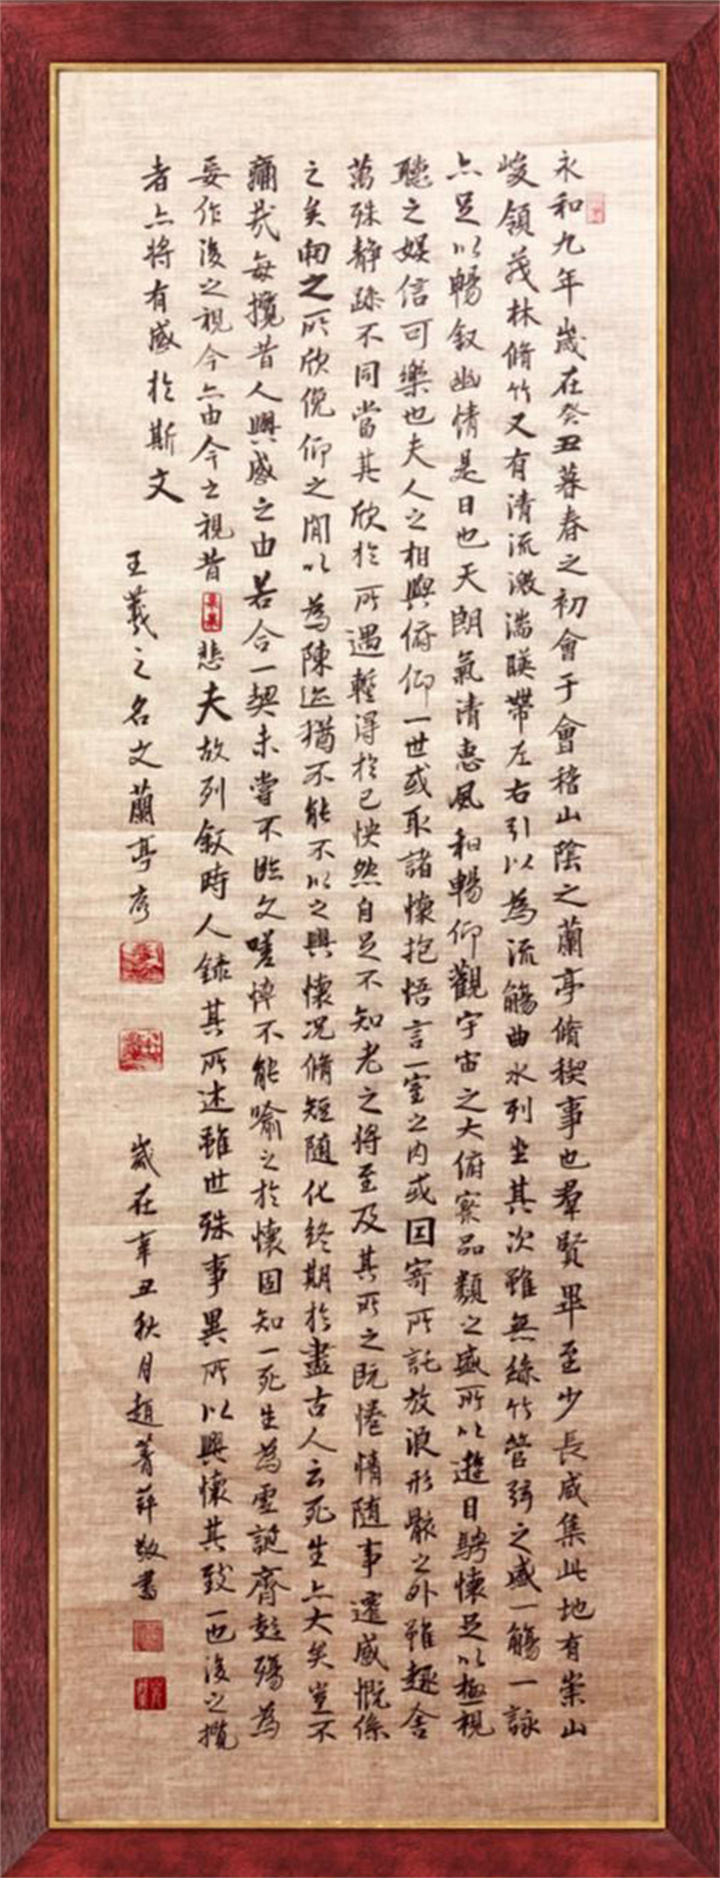 永和九年歲在癸丑暮春之初會于會稽山陰之蘭亭脩稧事也羣賢畢至少長咸集此地有崇山
峻領茂林脩竹又有清流激湍暎帶左右引以為流觴曲水列坐其次雖無絲竹管弦之盛一觴一詠
亦足以暢叙幽情是日也天朗氣清惠風和暢仰觀宇宙之大俯察品類之盛所以遊目騁懷足以極視
聽之娛信可樂也夫人之相與俯仰一世或取諸懷抱悟言一室之内或因寄所託放浪形骸之外雖趣舍
萬殊靜躁不同當其欣於所遇暫得於己怏然自足不知老之將至及其所之既惓情隨事遷感慨係
之矣向之所欣俛仰之閒以為陳迹猶不能不以之興懷況脩短隨化終期於盡古人云死生亦大矣豈不
痛哉每攬昔人興感之由若合一契未嘗不臨文嗟悼不能喻之於懷固知一死生為虛誕齊彭殤為
妄作後之視今亦由今之視昔悲夫故列叙時人錄其所述雖世殊事異所以興懷其致一也後之攬
者亦將有感於斯文
王羲之名文蘭亭序
歲在辛丑秋月趙菁萍敬書